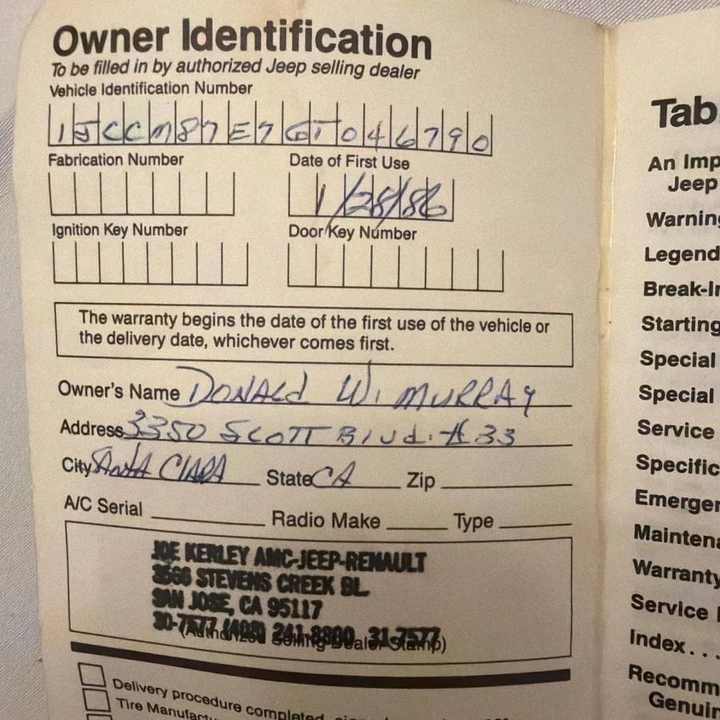 Owner Identification
To be filled in by authorized Jeep selling dealer
Vehicle Identification Number
1JCCM87E7GT046790
Fabrication Number Date of First Use
1/28/86
Ignition Key Number Door Key Number
The warranty begins the date of the first use of the vehicle or
the delivery date, whichever comes first.
Owner's Name DONALD W. MURRAY
Address 3350 SCOTT Blvd. #33
City SANTA CLARA State CA Zip
A/C Serial Radio Make Type
JOE KERLEY AMC-JEEP-RENAULT
3566 STEVENS CREEK BL.
SAN JOSE, CA 95117
30-7577 (408) 241-8300 31-7577
(Authorized Selling Dealer Stamp)
Delivery procedure completed,
Tire Manufactu
Tab
An Imp
Jeep
Warning
Legend
Break-In
Starting
Special
Special
Service
Specific
Emergen
Maintena
Warranty
Service
Index...
Recomm
Genuin